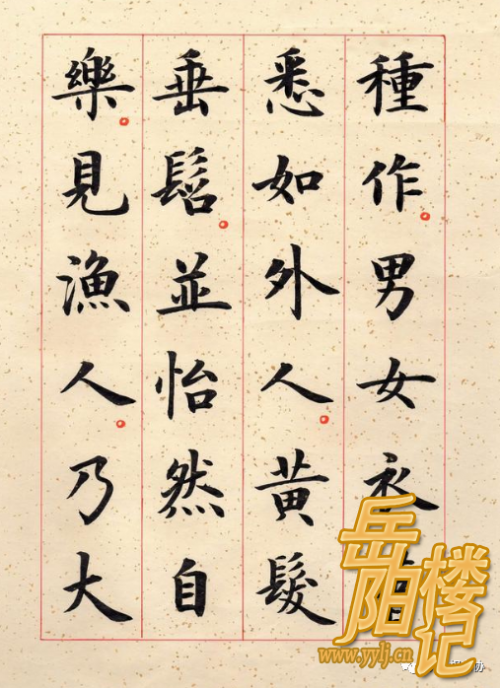 種作男女衣
悉如外人黄髮
垂髫並怡然自
樂見漁人乃大
岳阳楼记
www.yylj.cn